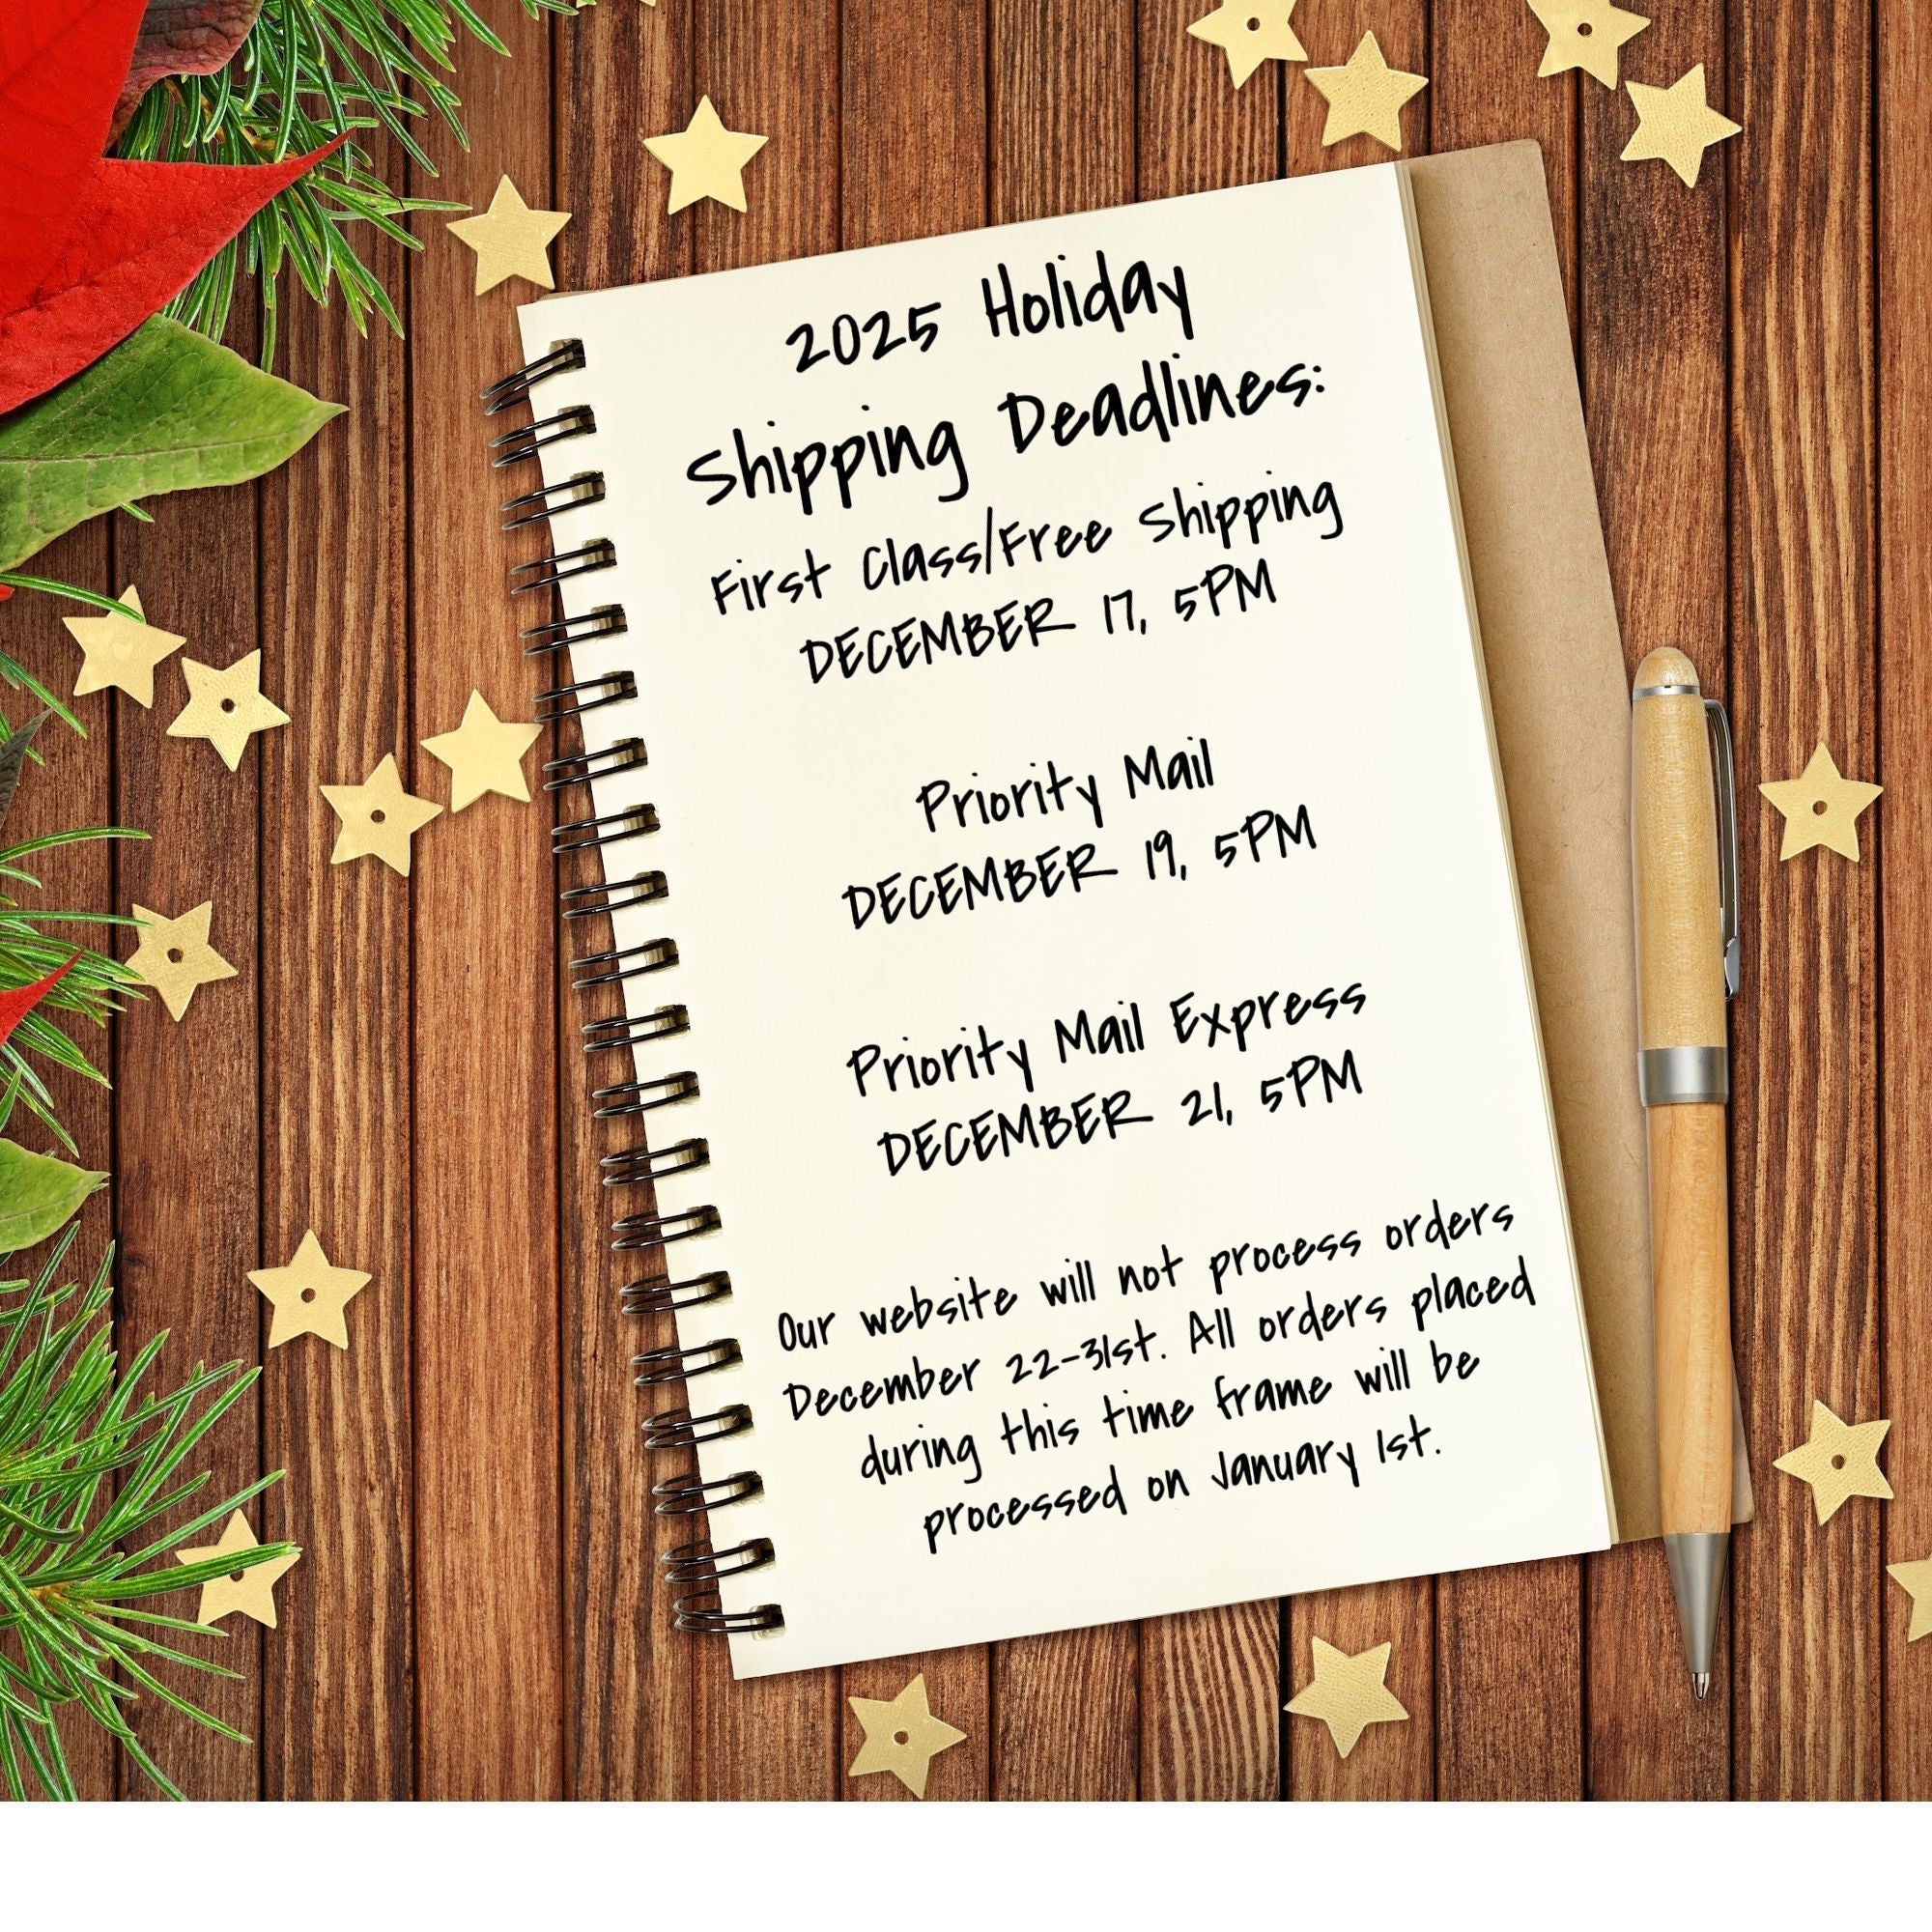 2025 Holiday
Shipping Deadlines:
First Class/Free Shipping
DECEMBER 17, 5PM
Priority Mail
DECEMBER 19, 5PM
Priority Mail Express
DECEMBER 21, 5PM
Our website will not process orders
December 22-31st. All orders placed
during this time frame will be
processed on January 1st.